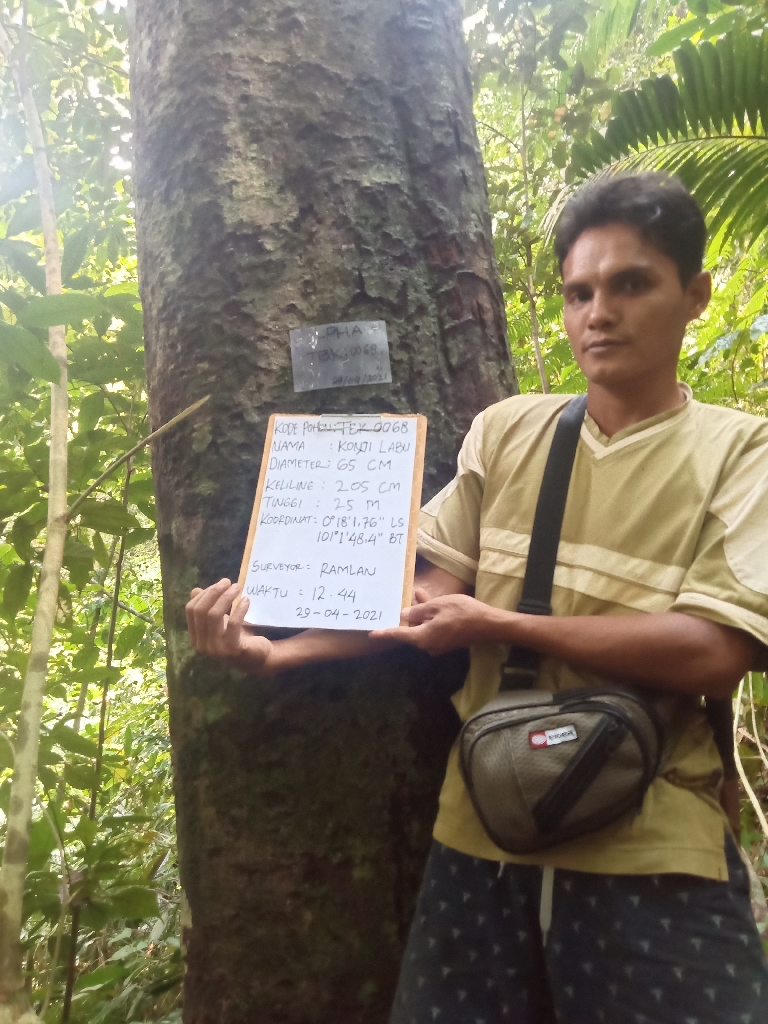 LPHA
TBK.0068
29/04/2021
KODE POHON: TEK 0068
NAMA : KONDI LABU
DIAMETER: 65 CM
KELILING : 205 CM
TINGGI : 25 M
KOORDINAT: 0°18'1,76" LS
101°1'48,4" BT
SURVEYOR: RAMLAN
WAKTU : 12.44
29-04-2021